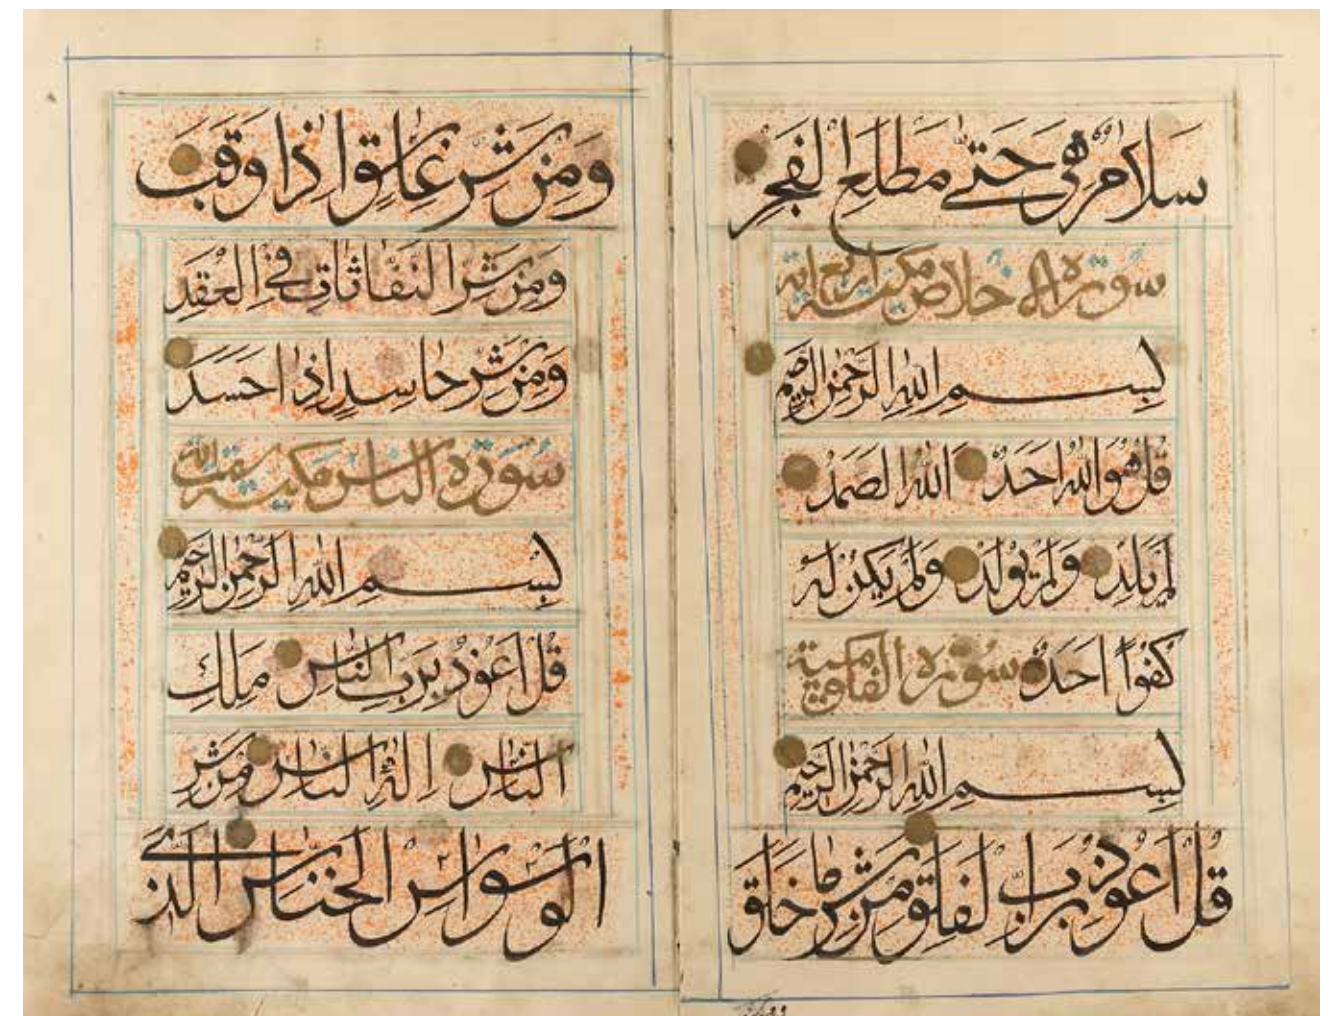 سَلَامٌ هِيَ حَتّٰى مَطْلَعِ الْفَجْرِ
سورة الاخلاص مكية اربع اية
بِسْمِ اللّٰهِ الرَّحْمٰنِ الرَّحِيمِ
قُلْ هُوَ اللّٰهُ اَحَدٌ اَللّٰهُ الصَّمَدُ
لَمْ يَلِدْ وَلَمْ يُولَدْ وَلَمْ يَكُنْ لَهُ
كُفُوًا اَحَدٌ سورة الفلق مكية
بِسْمِ اللّٰهِ الرَّحْمٰنِ الرَّحِيمِ
قُلْ اَعُوذُ بِرَبِّ الْفَلَقِ مِنْ شَرِّ مَا خَلَقَ
وَمِنْ شَرِّ غَاسِقٍ اِذَا وَقَبَ
وَمِنْ شَرِّ النَّفَّاثَاتِ فِي الْعُقَدِ
وَمِنْ شَرِّ حَاسِدٍ اِذَا حَسَدَ
سورة الناس مكية
بِسْمِ اللّٰهِ الرَّحْمٰنِ الرَّحِيمِ
قُلْ اَعُوذُ بِرَبِّ النَّاسِ مَلِكِ
النَّاسِ اِلٰهِ النَّاسِ مِنْ شَرِّ
الْوَسْوَاسِ الْخَنَّاسِ الَّذِي